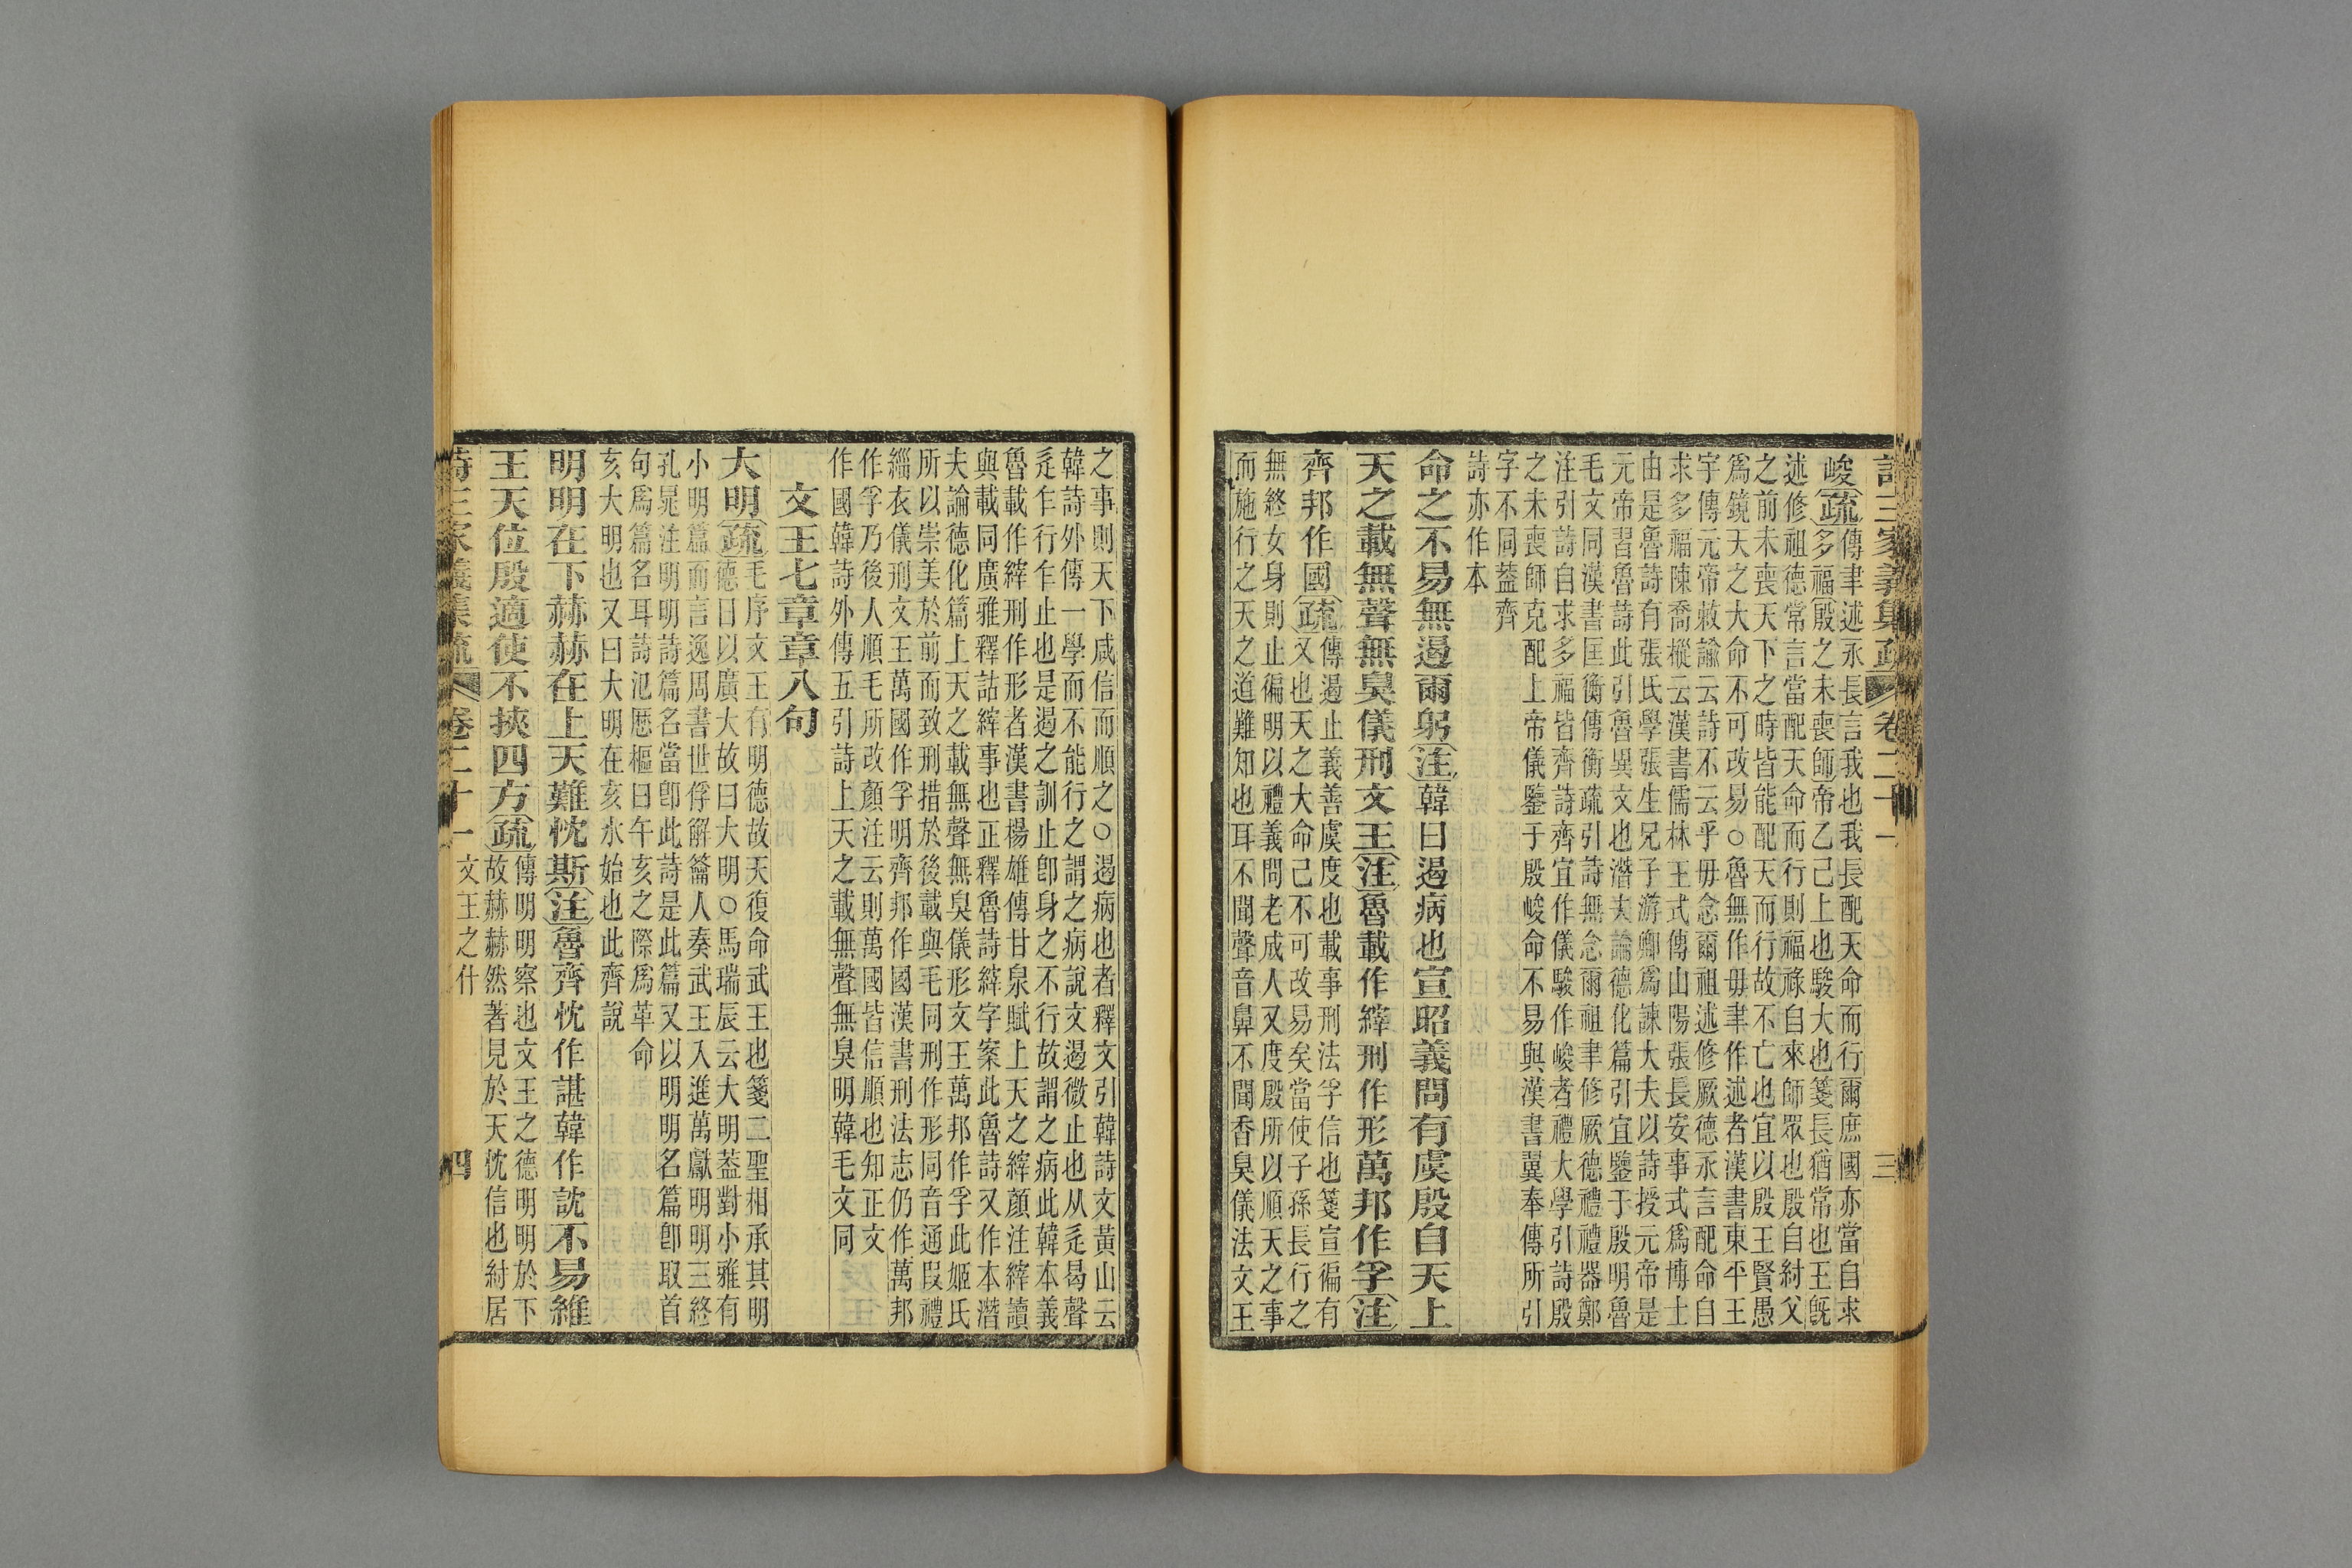 詩三家義集疏 卷二十一 三
峻疏傳聿述永長言我也我長配天命而行爾庶國亦當自求
多福殷之未喪師帝乙己上也駿大也箋長猶常也王旣
述修祖德常言當配天命而行則福祿自來師眾也殷自紂父
之前未喪天下之時皆能配天而行故不亡也宜以殷王賢愚
爲鏡天之大命不可改易○魯無作毋聿作述者漢書東平王
宇傳元帝敕諭云詩不云乎毋念爾祖述修厥德永言配命自
求多福陳喬樅云漢書儒林王式傳山陽張長安事式爲博士
由是魯詩有張氏學張生兄子游卿爲諫大夫以詩授元帝是
元帝習魯詩此引魯異文也潛夫論德化篇引宜鑒于殷明魯
毛文同漢書匡衡傳衡疏引詩無念爾祖聿修厥德禮禮器鄭
注引詩自求多福皆齊詩齊宜作儀駿作峻者禮大學引詩殷
之未喪師克配上帝儀鑒于殷峻命不易與漢書翼奉傳所引
字不同葢齊
詩亦作本
命之不易無遏爾躬注韓曰遏病也宣昭義問有虞殷自天上
天之載無聲無臭儀刑文王注魯載作縡刑作形萬邦作孚注
齊邦作國疏傳遏止義善虞度也載事刑法孚信也箋宣徧有
又也天之大命己不可改易矣當使子孫長行之
無終女身則止徧明以禮義問老成人又度殷所以順天之事
而施行之天之道難知也耳不聞聲音鼻不聞香臭儀法文王
之事則天下咸信而順之○遏病也者釋文引韓詩文黃山云
韓詩外傳一學而不能行之謂之病說文遏微止也从辵曷聲
辵乍行乍止也是遏之訓止卽身之不行故謂之病此韓本義
魯載作縡刑作形者漢書楊雄傳甘泉賦上天之縡顏注縡讀
與載同廣雅釋詁縡事也正釋魯詩縡字案此魯詩又作本潛
夫論德化篇上天之載無聲無臭儀形文王萬邦作孚此姬氏
所以崇美於前而致刑措於後載與毛同刑作形同音通叚禮
緇衣儀刑文王萬國作孚明齊邦作國漢書刑法志仍作萬邦
作孚乃後人順毛所改顏注云則萬國皆信順也知正文
作國韓詩外傳五引詩上天之載無聲無臭明韓毛文同
文王七章章八句
大明疏毛序文王有明德故天復命武王也箋二聖相承其明
德日以廣大故曰大明○馬瑞辰云大明葢對小雅有
小明篇而言逸周書世俘解籥人奏武王入進萬獻明明三終
孔晁注明明詩篇名當卽此詩是此篇又以明明名篇卽取首
句爲篇名耳詩氾歷樞曰午亥之際爲革命
亥大明也又曰大明在亥水始也此齊說
明明在下赫赫在上天難忱斯注魯齊忱作諶韓作訦不易維
王天位殷適使不挾四方疏傳明明察也文王之德明明於下
故赫赫然著見於天忱信也紂居
詩三家義集疏 卷二十一 文王之什 四